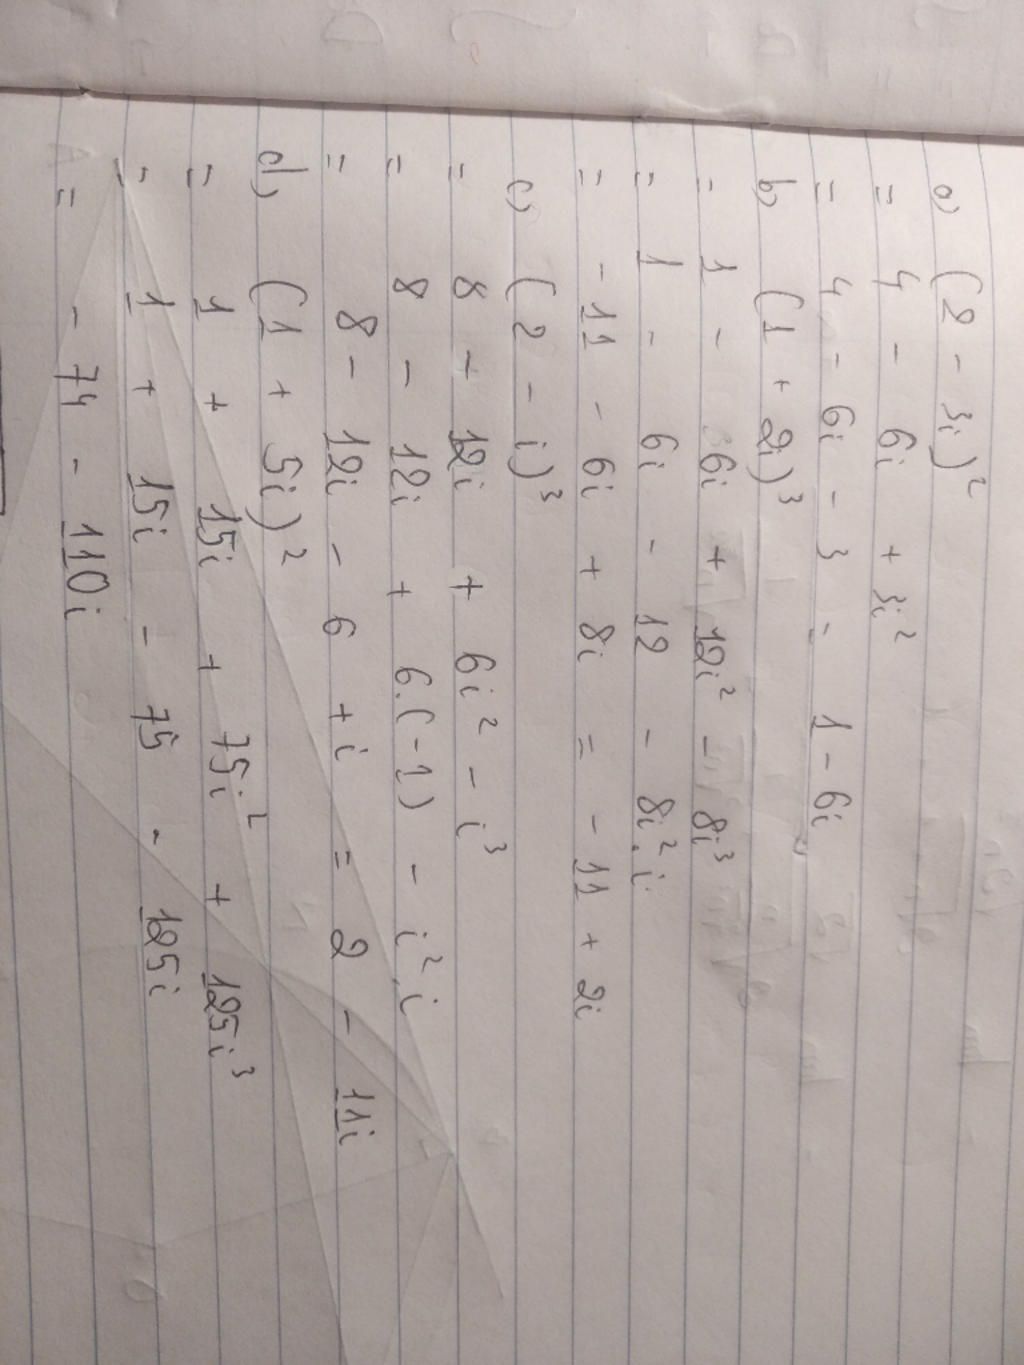 a) (2 - 3i)²
= 4 - 6i + 3i²
= 4 - 6i - 3 = 1 - 6i
b) (1 + 2i)³
= 1 - 6i + 12i² - 8i³
= 1 - 6i - 12 - 8i².i
= -11 - 6i + 8i = -11 + 2i
c) (2 - i)³
= 8 - 12i + 6i² - i³
= 8 - 12i + 6.(-1) - i².i
= 8 - 12i - 6 + i = 2 - 11i
d) (1 + 5i)²
= 1 + 15i + 75i² + 125i³
= 1 + 15i - 75 - 125i
= -74 - 110i